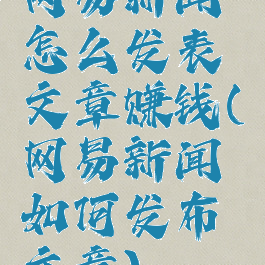 网易新闻
怎么发表
文章赚钱(
网易新闻
如何发布
文章)